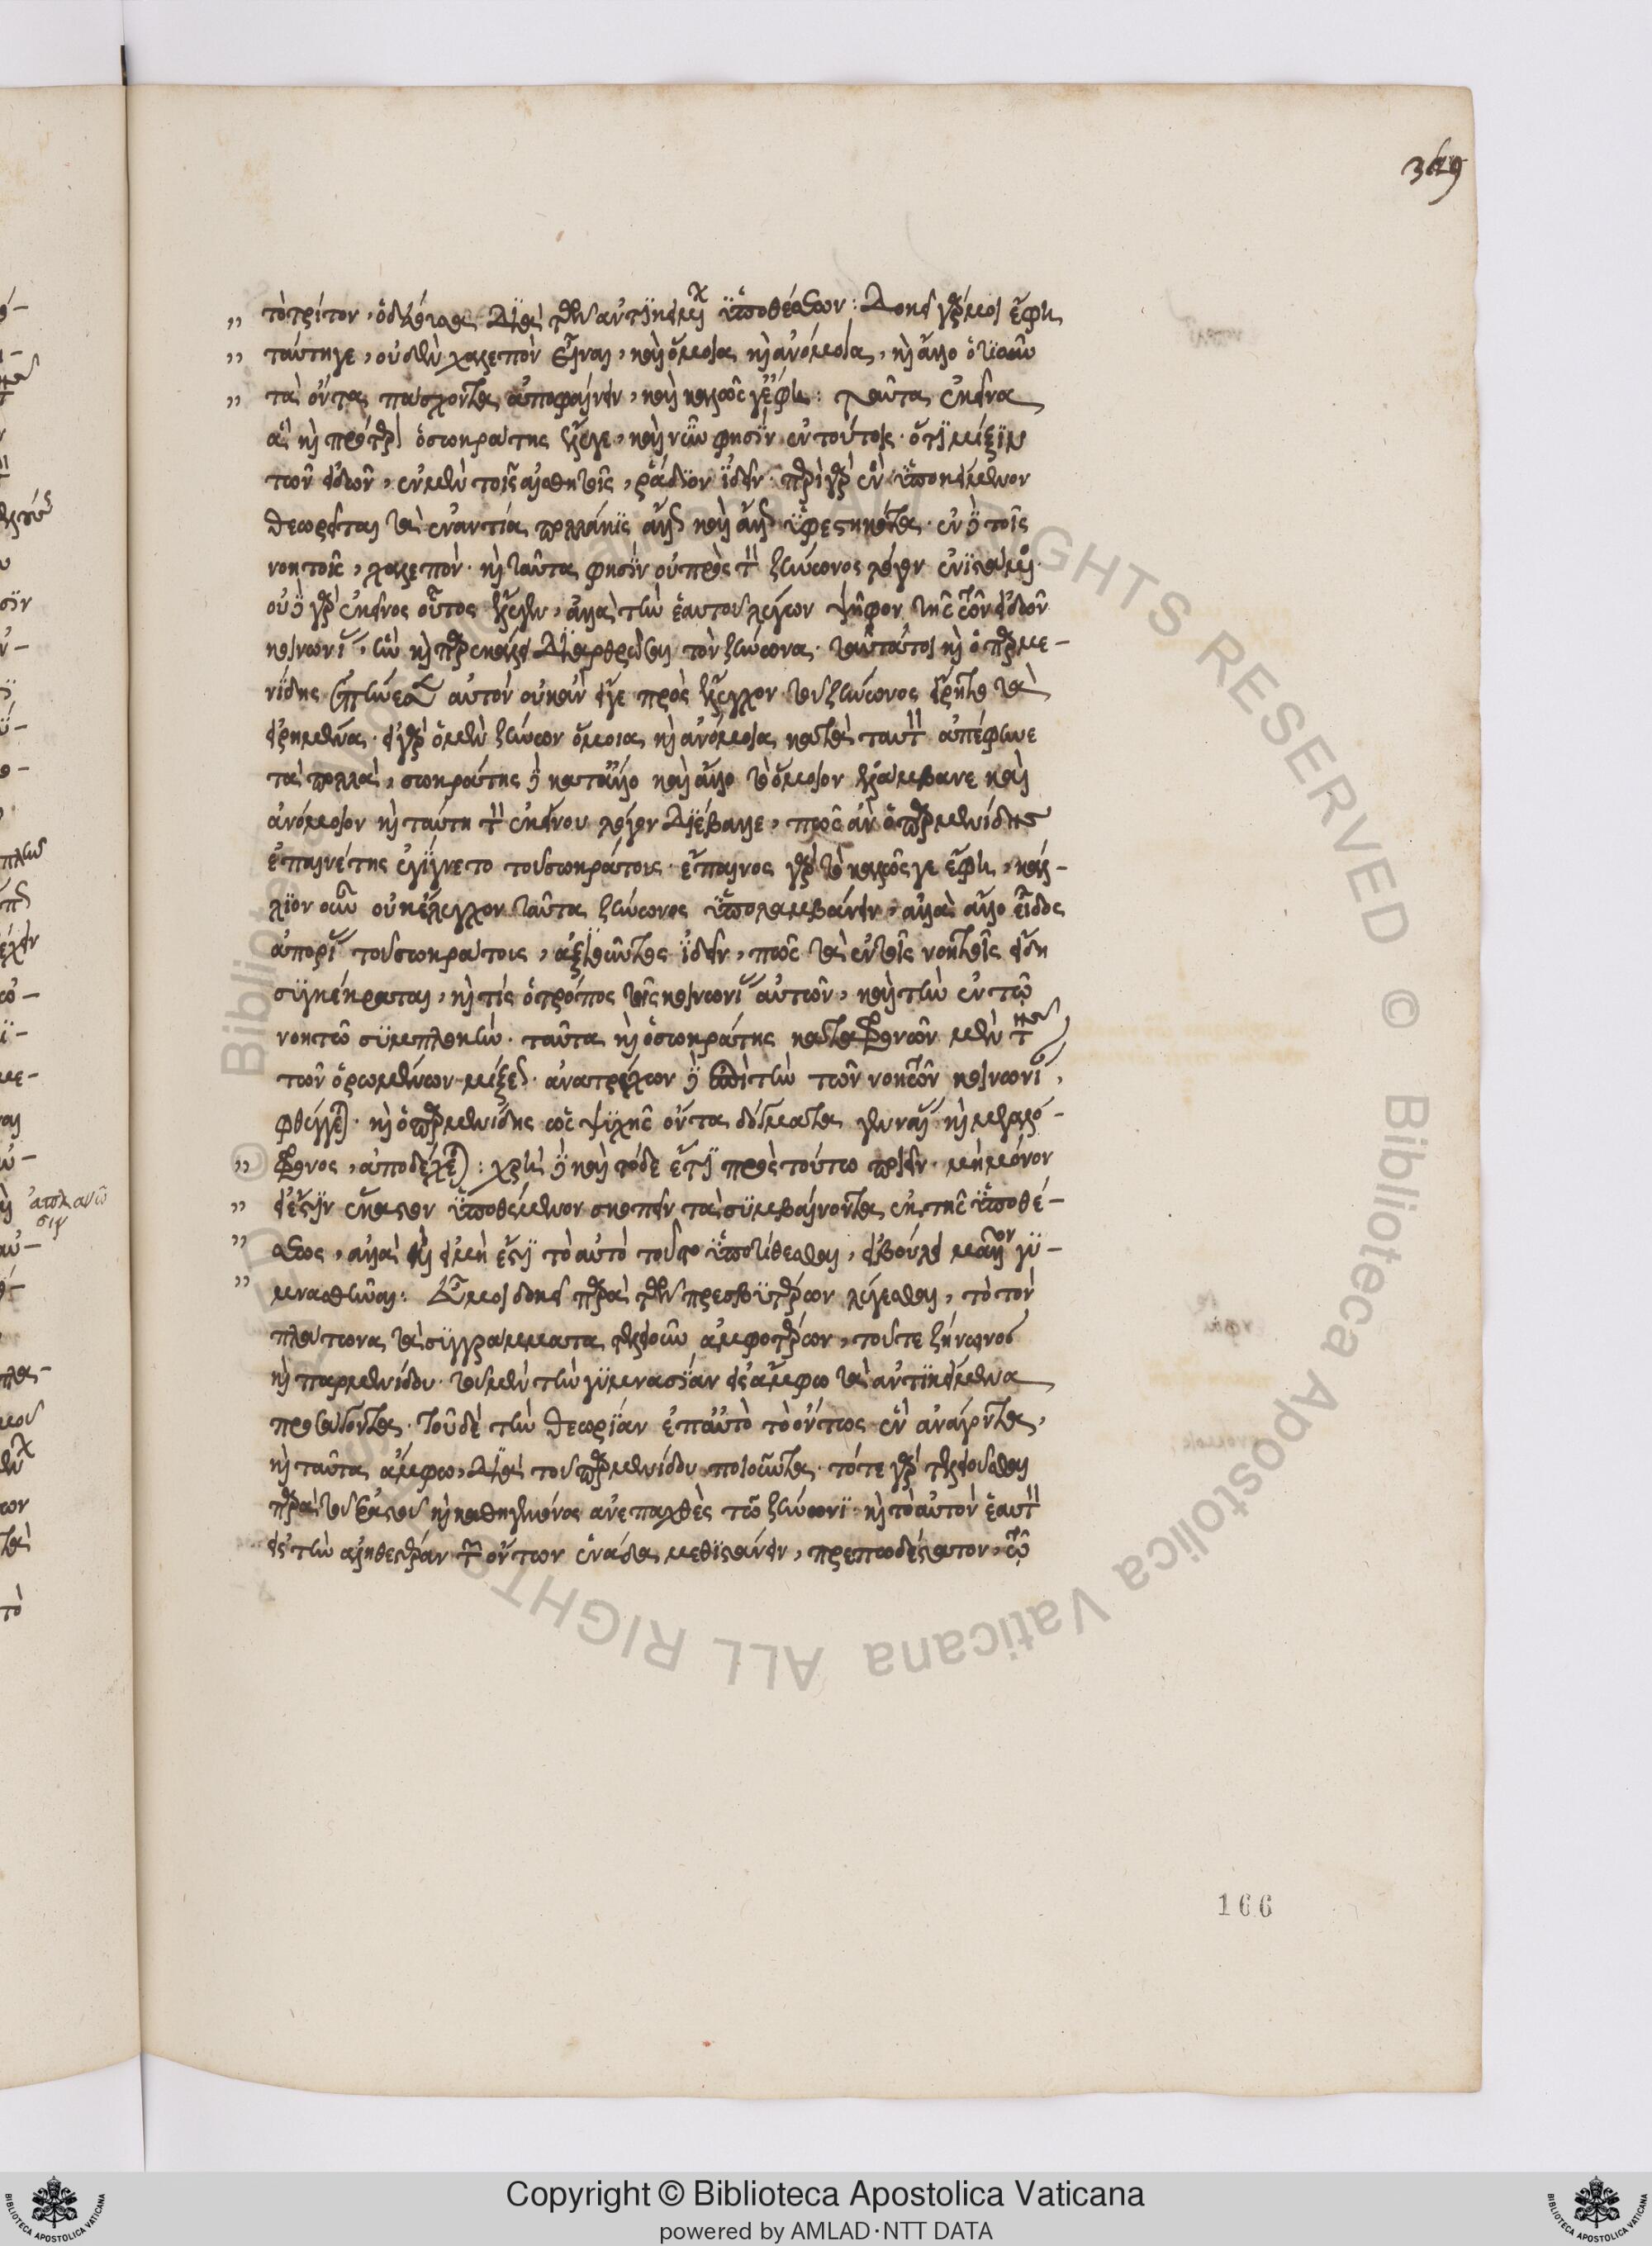 349
τὸ τρίτον, ὁδεύεσθαι διὰ τῶν ἀντικειμένων ὑποθέσεων: Δοκεῖ γάρ μοι ἔφη
ταύτη γε, οὐδὲν χαλεπὸν εἶναι, καὶ ὅμοια καὶ ἀνόμοια, καὶ ἄλλο ὁτιοῦν
τὰ ὄντα πάσχοντα ἀποφαίνειν, καὶ καλῶς γ' ἔφη: ταῦτα ἐκεῖνα
ἃ καὶ πρότερον ὁ σωκράτης ἔλεγε, καὶ νῦν φησὶν ἐν τούτοις. ὅτι μίξιν
τῶν εἰδῶν, ἐν μὲν τοῖς αἰσθητοῖς, ῥάδιον ἰδεῖν· περὶ γὰρ ἓν ὑποκείμενον
θεωρεῖται τὰ ἐναντία πολλάκις ἄλλη καὶ ἄλλη ὑφεστηκότα. ἐν δὲ τοῖς
νοητοῖς, χαλεπόν. καὶ ταῦτα φησὶν οὐ πρὸς τὸν ζήνωνος λόγον ἐνιστάμενος.
οὐδὲ γὰρ ἐκεῖνος οὕτως ἔλεγεν, ἀλλὰ τὴν ἑαυτοῦ λέγων ψῆφον τῆς τῶν εἰδῶν
κοινωνίας, ἣν καὶ παρεκάλει διαρθρῶσαι τὸν ζήνωνα. ταύτῃ τοι καὶ ὁ παρμε-
νίδης ἐπῄνεσεν αὐτὸν οὐκ ἂν εἴγε πρὸς ἔλεγχον τοῦ ζήνωνος εἴρητο τὰ
εἰρημένα. εἰ γὰρ ὁ μὲν ζήνων ὅμοια καὶ ἀνόμοια κατὰ ταυτὸν ἀπέφηνε
τὰ πολλὰ, σωκράτης δὲ κατ' ἄλλο καὶ ἄλλο τὸ ὅμοιον ἐλάμβανε καὶ
ἀνόμοιον καὶ ταύτῃ τὸν ἐκείνου λόγον διέβαλλε, πῶς ἂν ὁ παρμενίδης
ἐπαινέτης ἐγίγνετο τοῦ σωκράτους. ἔπαινος γὰρ τὸ καλῶς γε ἔφη, κάλ-
λιον οὖν οὐκ ἔλεγχον ταῦτα ζήνωνος ὑπολαμβάνειν, ἀλλὰ ἄλλο εἶδος
ἀπορίας τοῦ σωκράτους, ἀξιοῦντος ἰδεῖν, πῶς τὰ ἐν τοῖς νοητοῖς εἴδη
συγκέκραται, καὶ τίς ὁ τρόπος τῆς κοινωνίας αὐτῶν, καὶ τὴν ἐν τῷ
νοητῷ συμπλοκήν. ταῦτα καὶ ὁ σωκράτης καταφρονῶν μὲν τῆς
τῶν ὁρωμένων μίξεως. ἀνατρέχων δὲ ἐπὶ τὴν τῶν νοητῶν κοινωνίαν,
φθέγγεται. καὶ ὁ παρμενίδης ὡς ψυχῆς ὄντα δόγματα γενναίας καὶ μεγαλό-
φρονος, ἀποδέχεται: χρὴ δὲ καὶ τόδε ἔτι πρὸς τούτω ποιεῖν. μὴ μόνον
εἰ ἔστιν ἕκαστον ὑποθέμενον σκοπεῖν τὰ συμβαίνοντα ἐκ τῆς ὑποθέ-
σεως, ἀλλὰ καὶ εἰ μή ἐστι τὸ αὐτὸ τοῦτο ὑποτίθεσθαι, εἰ βούλει μᾶλλον γυ-
μνασθῆναι: Ἔμοι δοκεῖ παρὰ τῶν πρεσβυτέρων λέγεσθαι, τὸ τὸν
πλάτωνα τὰ συγγράμματα τελειοῦν ἀμφοτέρων, τοῦ τε ζήνωνος
καὶ παρμενίδου. τοῦ μὲν τὴν γυμνασίαν εἰς ἄμφω τὰ ἀντικείμενα
προάγοντα. τοῦ δὲ τὴν θεωρίαν ἐπ' αὐτὸ τὸ ὄντως ἓν ἀνάγοντα,
καὶ ταῦτα ἄμφω, διὰ τοῦ παρμενίδου ποιοῦντα. τότε γὰρ τελειοῦσθαι
παρὰ τοῦ ἑαυτοῦ καθηγεμόνος ἀνεπαχθὲς τῷ ζήνωνι. καὶ τὸ αὐτὸν ἑαυτὸν
εἰς τὴν ἀληθεστέραν τῶν ὄντων ἑνάδα μεθιστάνειν, πρεπωδέστατον, τῷ
ἀπλανῶ
σιν
166
Copyright © Biblioteca Apostolica Vaticana
powered by AMLAD·NTT DATA